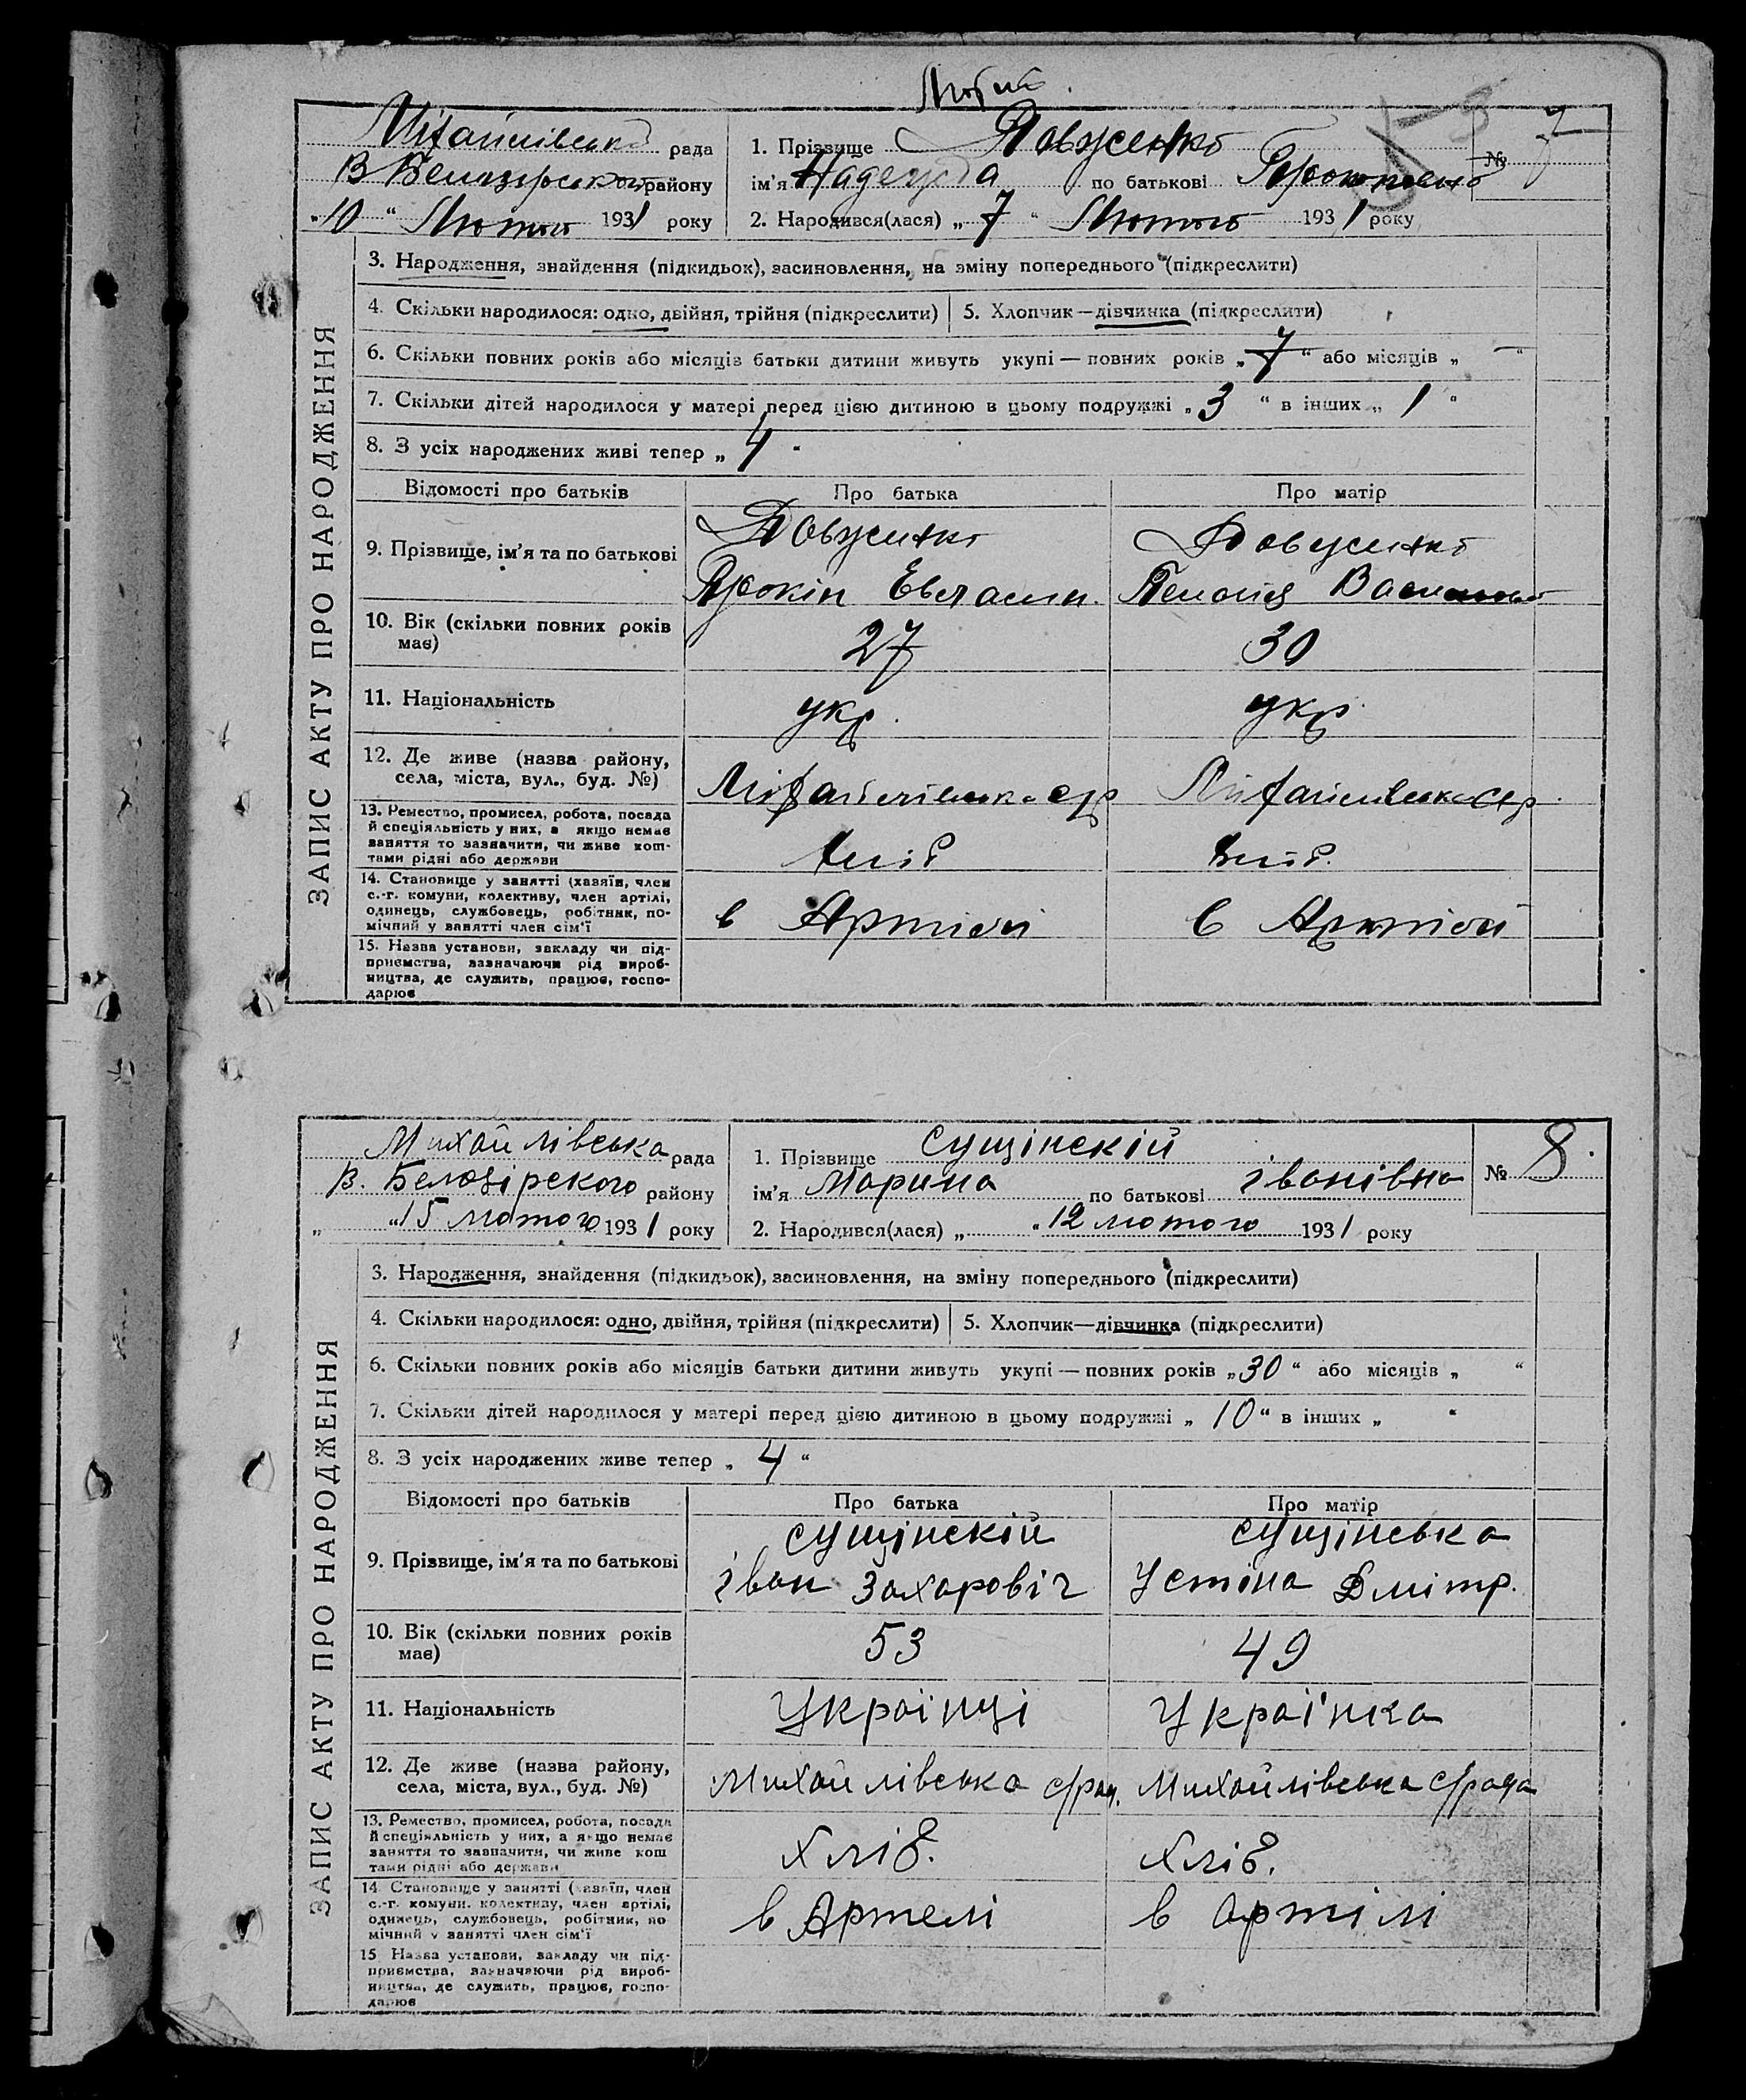 Лютий.
Міхайлівська рада
В Белозірського району
"10" Лютого 1931 року
1. Прізвище Довженко
ім'я Надежда по батькові
№ 7
2. Народився(лася) „7" Лютого 1931 року
ЗАПИС АКТУ ПРО НАРОДЖЕННЯ
3. Народження, знайдення (підкидьок), засиновлення, на зміну попереднього (підкреслити)
4. Скільки народилося: одно, двійня, трійня (підкреслити) 5. Хлопчик—дівчинка (підкреслити)
6. Скільки повних років або місяців батьки дитини живуть укупі — повних років „7" або місяців „—"
7. Скільки дітей народилося у матері перед цією дитиною в цьому подружжі „3" в інших „1"
8. З усіх народжених живі тепер „4"
Відомості про батьків Про батька Про матір
9. Прізвище, ім'я та по батькові
Довженко Довженко
Прокіп
10. Вік (скільки повних років має) 27 30
11. Національність укр. укр.
12. Де живе (назва району, села, міста, вул., буд. №)
Міхайлівська с/р Міхайлівська с/р.
13. Ремество, промисел, робота, посада
й спеціяльність у них, а якщо немає
заняття то зазначити, чи живе кош-
тами рідні або держави
хліб хліб.
14. Становище у занятті (хазяїн, член
с.-г. комуни, колективу, член артілі,
одинець, службовець, робітник, по-
мічний у занятті член сім'ї
в Артілі в Артілі
15. Назва установи, закладу чи під-
приємства, зазначаючи рід вироб-
ництва, де служить, працює, госпо-
дарює
Михайлівська рада
В. Белозірского району
„ "15 лютого 1931 року
1. Прізвище Сущінскій
ім'я Марина по батькові іванівна
№ 8.
2. Народився(лася) „ "12 лютого 1931 року
ЗАПИС АКТУ ПРО НАРОДЖЕННЯ
3. Народження, знайдення (підкидьок), засиновлення, на зміну попереднього (підкреслити)
4. Скільки народилося: одно, двійня, трійня (підкреслити) 5. Хлопчик—дівчинка (підкреслити)
6. Скільки повних років або місяців батьки дитини живуть укупі — повних років „30" або місяців „ "
7. Скільки дітей народилося у матері перед цією дитиною в цьому подружжі „10" в інших „ "
8. З усіх народжених живе тепер „4"
Відомості про батьків Про батька Про матір
9. Прізвище, ім'я та по батькові
сущінскій сущінська
іван Захаровіч Устіна Дмітр.
10. Вік (скільки повних років має) 53 49
11. Національність Украінці Украінка
12. Де живе (назва району, села, міста, вул., буд. №)
Михайлівська с/рад. Михайлівська с/рада
13. Ремество, промисел, робота, посада
й спеціяльність у них, а якщо немає
заняття то зазначити, чи живе кош
тами рідні або держави
хліб. хліб.
14. Становище у занятті (хазяїн, член
с.-г. комуни, колективу, член артілі,
одинець, службовець, робітник, по
мічний у занятті член сім'ї
в Артелі в артілі
15 Назва установи, закладу чи під-
приємства, зазначаючи рід вироб-
ництва, де служить, працює, госпо-
дарює